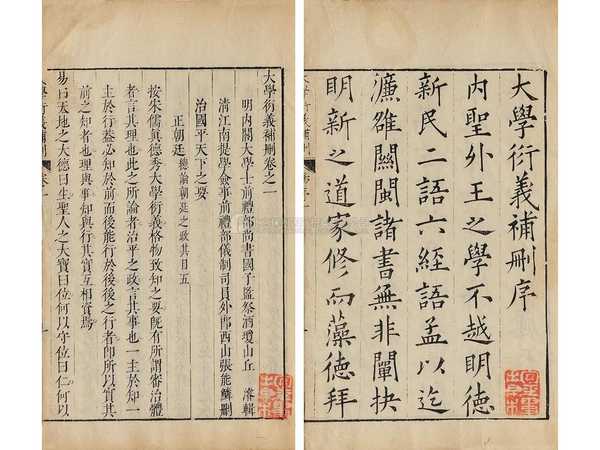 大學衍義補刪序
内聖外王之學不越明德
新民二語六經語孟以迄
濂雒關閩諸書無非闡抉
明新之道家修而藻德拜
大學衍義補刪卷之一
明内閣大學士前禮部尚書國子監祭酒瓊山丘 濬輯
清江南提學僉事前禮部儀制司員外郎西山張能鱗刪
治國平天下之要
正朝廷 總論朝廷之政其目五
按宋儒真德秀大學衍義格物致知之要旣有所謂審治體
者言其理也此之所論者治平之政言其事也一主於知一
主於行蓋必知於前而後能行於後後之行者卽所以實其
前之知者也理與事知與行其實互相資焉
易曰天地之大德曰生聖人之大寶曰位何以守位曰仁何以